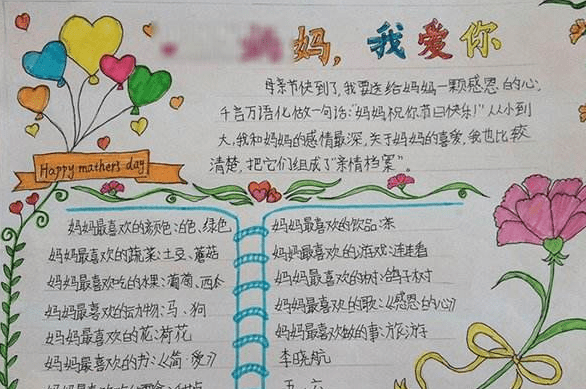 妈,我爱你
母亲节快到了,我要送给妈妈一颗感恩的心,
千言万语化做一句话:“妈妈祝你节日快乐!”从小到
大,我和妈妈的感情最深,关于妈妈的喜爱,我也比较
清楚,把它们组成了“亲情档案”。
Happy mather's day
妈妈最喜欢的颜色:白色、绿色
妈妈最喜欢的蔬菜:土豆、蘑菇
妈妈最喜欢吃的水果:葡萄、西
妈妈最喜欢的动物:马、狗
妈妈最喜欢的花:荷花
妈妈最喜欢的书:《简·爱》
妈妈最喜欢的饮品:茶
妈妈最喜欢的游戏:连连看
妈妈最喜欢的树:鸽子树
妈妈最喜欢的歌:《感恩的心》
妈妈最喜欢做的事:旅游
李晓航
五、六